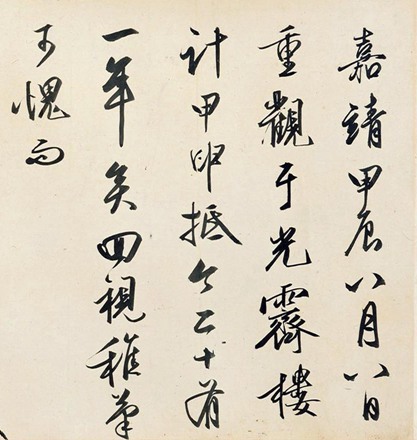 嘉靖甲辰八月八日
重觀于光霽樓
計甲申抵今二十有
一年矣回視稚筆
可愧而